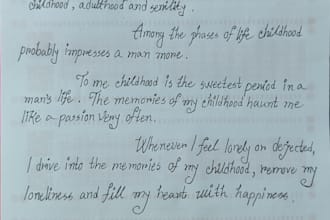 childhood, adulthood and senility.
Among the phases of life childhood
probably impresses a man more.
To me childhood is the sweetest period in a
man's life. The memories of my childhood haunt me
like a passion very often.
Whenever I feel lonely or dejected,
I drive into the memories of my childhood, remove my
loneliness and fill my heart with happiness.